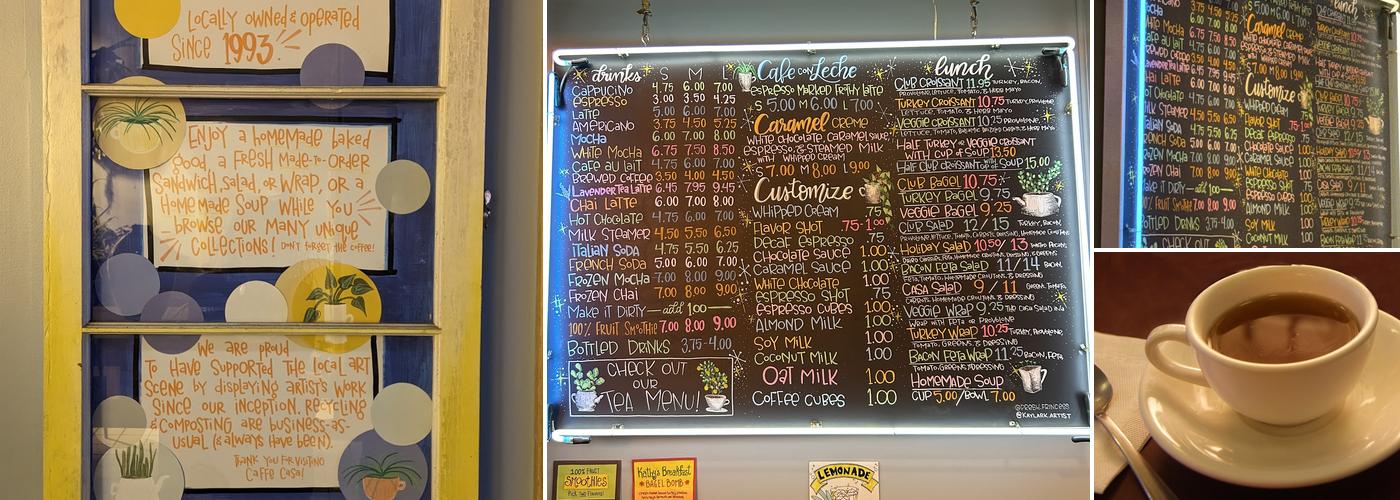 Locally owned & operated
Since 1993
Enjoy a homemade baked
good, a fresh made-to-order
sandwich, salad, or wrap, or a
homemade soup while you
browse our many unique
collections! Don't forget the coffee!
We are proud
to have supported the local art
scene by displaying artist's work
since our inception. Recycling
& composting are business-as-
usual (& always have been).
Thank you for visiting
Caffe Casa!
drinks S M L
Cappucino 4.75 6.00 7.00
Espresso 3.00 3.50 4.25
Latte 5.00 6.00 7.00
Americano 3.75 4.50 5.25
Mocha 6.00 7.00 8.00
White Mocha 6.75 7.50 8.50
Cafe au lait 4.75 6.00 7.00
Brewed Coffee 3.50 4.00 4.50
Lavender Tea Latte 6.45 7.95 9.45
Chai Latte 6.00 7.00 8.00
Hot Chocolate 4.75 6.00 7.00
Milk Steamer 4.50 5.50 6.50
Italian Soda 4.75 5.50 6.25
French Soda 5.00 6.00 7.00
Frozen Mocha 7.00 8.00 9.00
Frozen Chai 7.00 8.00 9.00
Make it Dirty — add 1.00
100% Fruit Smoothie 7.00 8.00 9.00
Bottled Drinks 3.75-4.00
Check out
our
Tea Menu!
Cafe con Leche
espresso marked frothy latte
S 5.00 M 6.00 L 7.00
Caramel creme
white chocolate, caramel sauce
espresso & steamed milk
with whipped cream
S 7.00 M 8.00 L 9.00
Customize
Whipped Cream .75
Flavor Shot .75-1.00
Decaf Espresso .75
Chocolate Sauce 1.00
Caramel Sauce 1.00
White Chocolate 1.00
Espresso Shot .75
Espresso Cubes 1.00
Almond Milk 1.00
Soy Milk 1.00
Coconut Milk 1.00
Oat Milk 1.00
Coffee Cubes 1.00
lunch
Club Croissant 11.95 Turkey, Bacon,
Provolone, Lettuce, Tomato, & Herb Mayo
Turkey Croissant 10.75 Turkey, Provolone,
Lettuce, Tomato, & Herb Mayo
Veggie Croissant 10.25 Provolone,
Half Turkey or Veggie Croissant
with cup of soup 13.50
Half Club Croissant with cup of soup 15.00
Club Bagel 10.75
Turkey Bagel 9.75
Veggie Bagel 9.25
Club Salad 12/15 Turkey, Bacon,
Holiday Salad 10.50/13
Bacon Feta Salad 11/14 Bacon,
Feta, Tomato, Homemade Croutons, & Dressing
Casa Salad 9/11 Greens, Tomato,
Veggie Wrap 9.25 The Casa Salad in a
wrap with Feta or Provolone
Turkey Wrap 10.25 Turkey, Provolone,
Tomato, Greens, & Dressing
Bacon Feta Wrap 11.25 Bacon, Feta,
Tomato, Greens, & Dressing
Homemade Soup
Cup 5.00/Bowl 7.00
@kaylark.artist
100% Fruit
Smoothies
Pick Two Flavors!
Kathy's Breakfast
Bagel Bomb
Lemonade